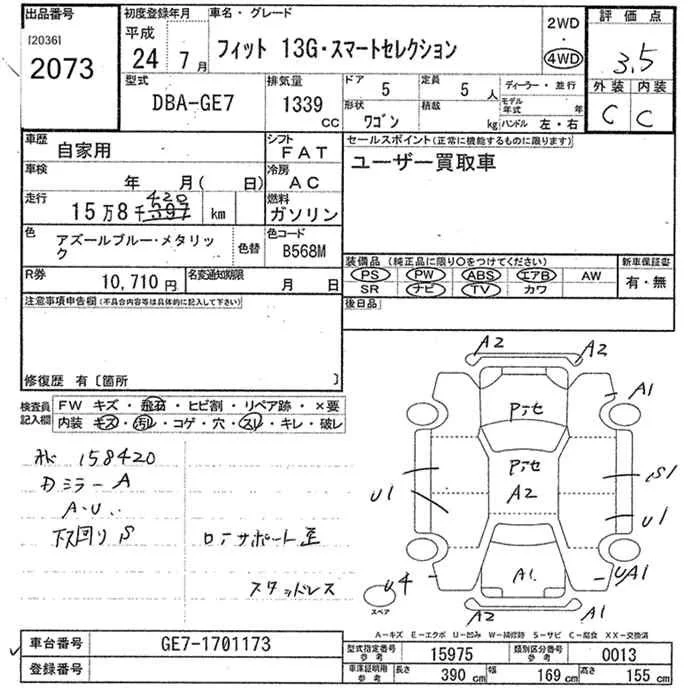 出品番号
[20361
2073
初度登録年月
平成
24 7月
車名・グレード
フィット 13G・スマートセレクション
2WD
・
4WD
評価点
3.5
外装 内装
C C
型式
DBA-GE7
排気量
1339 CC
ドア 5
定員 5 人
形状 ワゴン
積載 kg
ディーラー・並行
モデル年式 年
ハンドル 左・右
車歴
自家用
シフト
FAT
車検
年 月( 日)
冷房
AC
走行
15万8千397 km
420
燃料
ガソリン
色
アズールブルー・メタリック
色替
色コード
B568M
R券 10,710円
名変通知期限 月 日
セールスポイント(正常に機能するものに限ります)
ユーザー買取車
装備品(純正品に限り○をつけてください)
PS PW ABS エアB AW
SR ナビ TV カワ
新車保証書
有・無
注意事項申告欄(不具合内容等は具体的に記入して下さい)
修復歴 有〔箇所 〕
後日品
検査員記入欄
FW キズ・飛石・ヒビ割・リペア跡・×要
内装 キズ・汚レ・コゲ・穴・スレ・キレ・破レ
158420
ミラー A
A・U
下回り S
サポート
スタッドレス
A2 A2
A1
A2
S1
U1
U1
U4
A1
UA1
A2
A1
スペア
A−キズ E−エクボ U−凹み W−補修跡 S−サビ C−腐食 XX−交換済
車台番号 GE7-1701173
登録番号
型式指定番号 参考 15975
類別区分番号 参考 0013
車庫証明用 参考 長さ 390 cm 幅 169 cm 高さ 155 cm